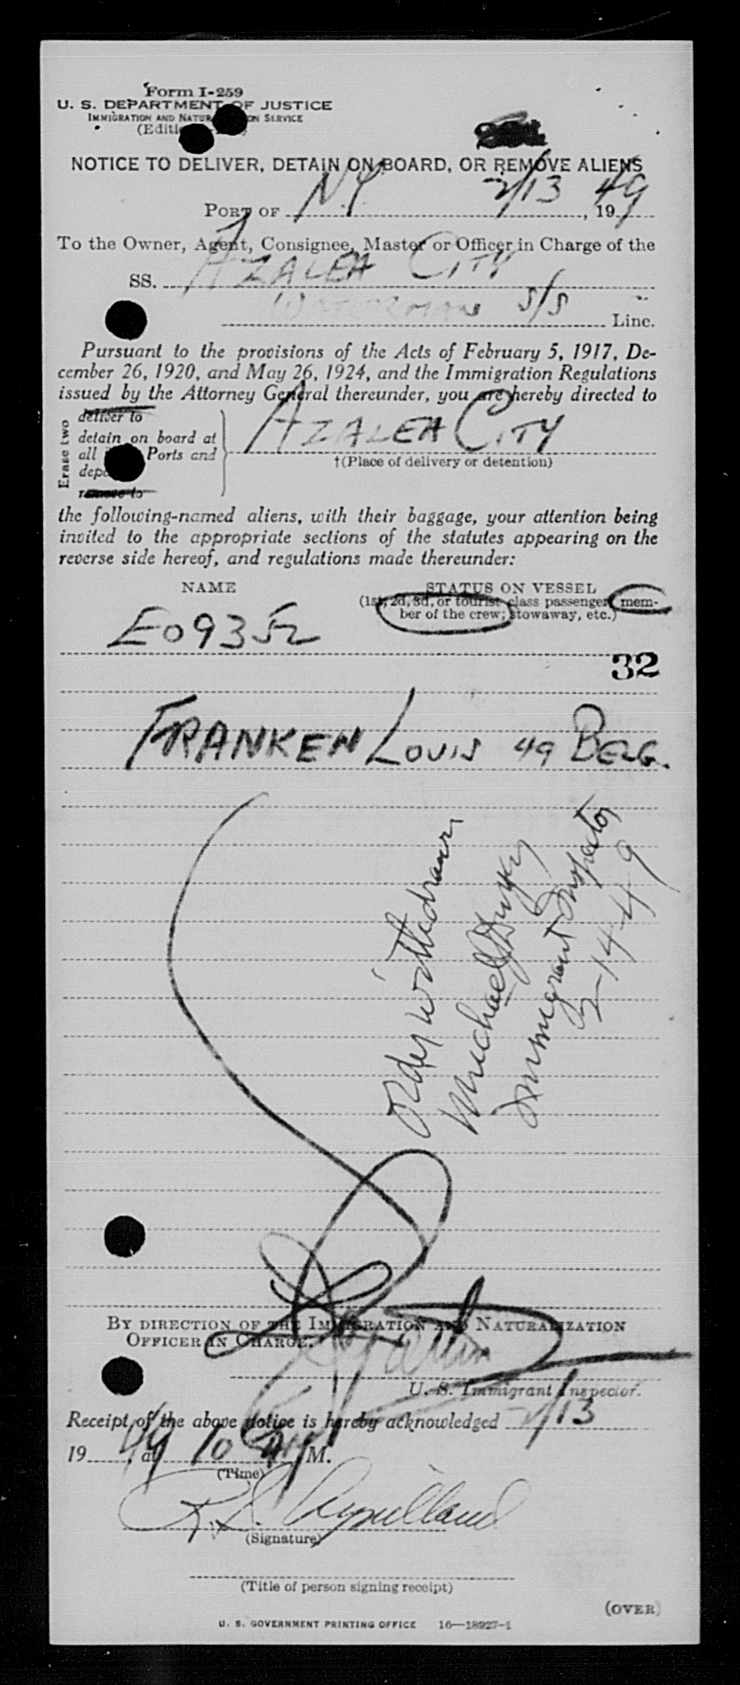 Form I-259
U. S. DEPARTMENT OF JUSTICE
IMMIGRATION AND NATURALIZATION SERVICE
NOTICE TO DELIVER, DETAIN ON BOARD, OR REMOVE ALIENS
PORT OF NY 2/13, 1949
To the Owner, Agent, Consignee, Master or Officer in Charge of the
SS. AZALEA CITY
WATERMAN S/S Line.
Pursuant to the provisions of the Acts of February 5, 1917, De-
cember 26, 1920, and May 26, 1924, and the Immigration Regulations
issued by the Attorney General thereunder, you are hereby directed to
Erase two
deliver to
detain on board at
all Ports and
remove to
AZALEA CITY
†(Place of delivery or detention)
the following-named aliens, with their baggage, your attention being
invited to the appropriate sections of the statutes appearing on the
reverse side hereof, and regulations made thereunder:
NAME STATUS ON VESSEL
(1st, 2d, 3d, or tourist class passenger, mem-
ber of the crew; stowaway, etc.)
E09352
32
FRANKEN LOUIS 49 BELG.
Order withdrawn
Michael
Immigrant Inspector
2-14-49
BY DIRECTION OF THE IMMIGRATION AND NATURALIZATION
OFFICER IN CHARGE.
U. S. Immigrant Inspector.
Receipt of the above notice is hereby acknowledged 2/13
1949, at 10 AM M.
(Time)
(Signature)
(Title of person signing receipt)
(OVER)
U. S. GOVERNMENT PRINTING OFFICE 16—18927-1